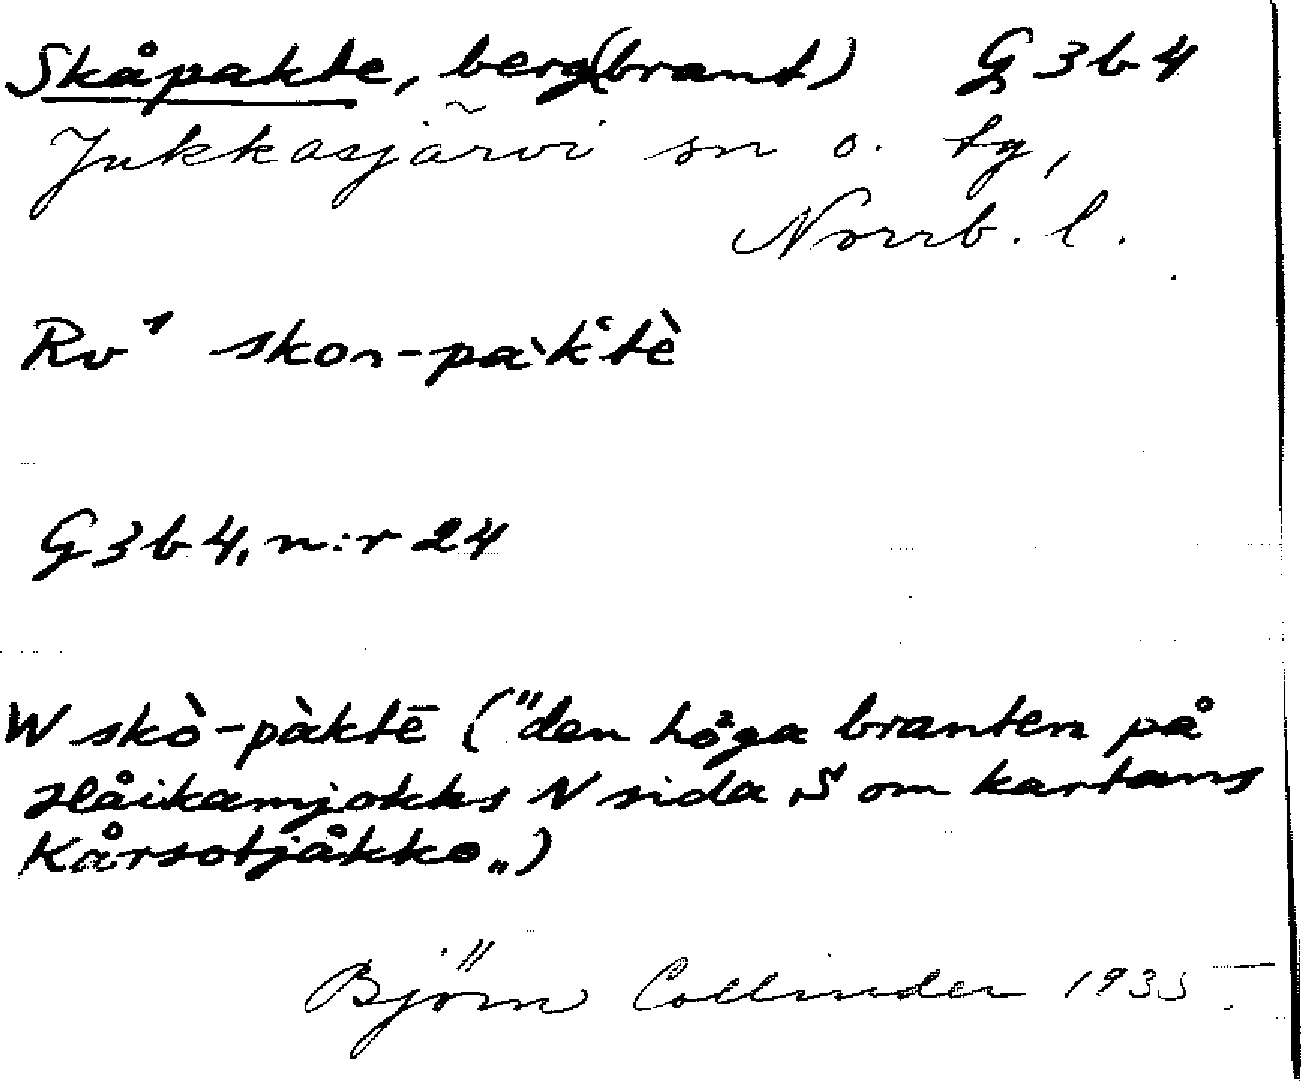 Skåpakte, berg(brant) G 3 b 4
Jukkasjärvi sn o. tg,
Norrb. l.
Rv¹ skon-pàk‘tè
G 3 b 4, n:r 24
W skò-pàktē ("den höga branten på
Håikamjokks N sida, S om kartans
Kårsotjåkko„)
Björn Collinder 1935.